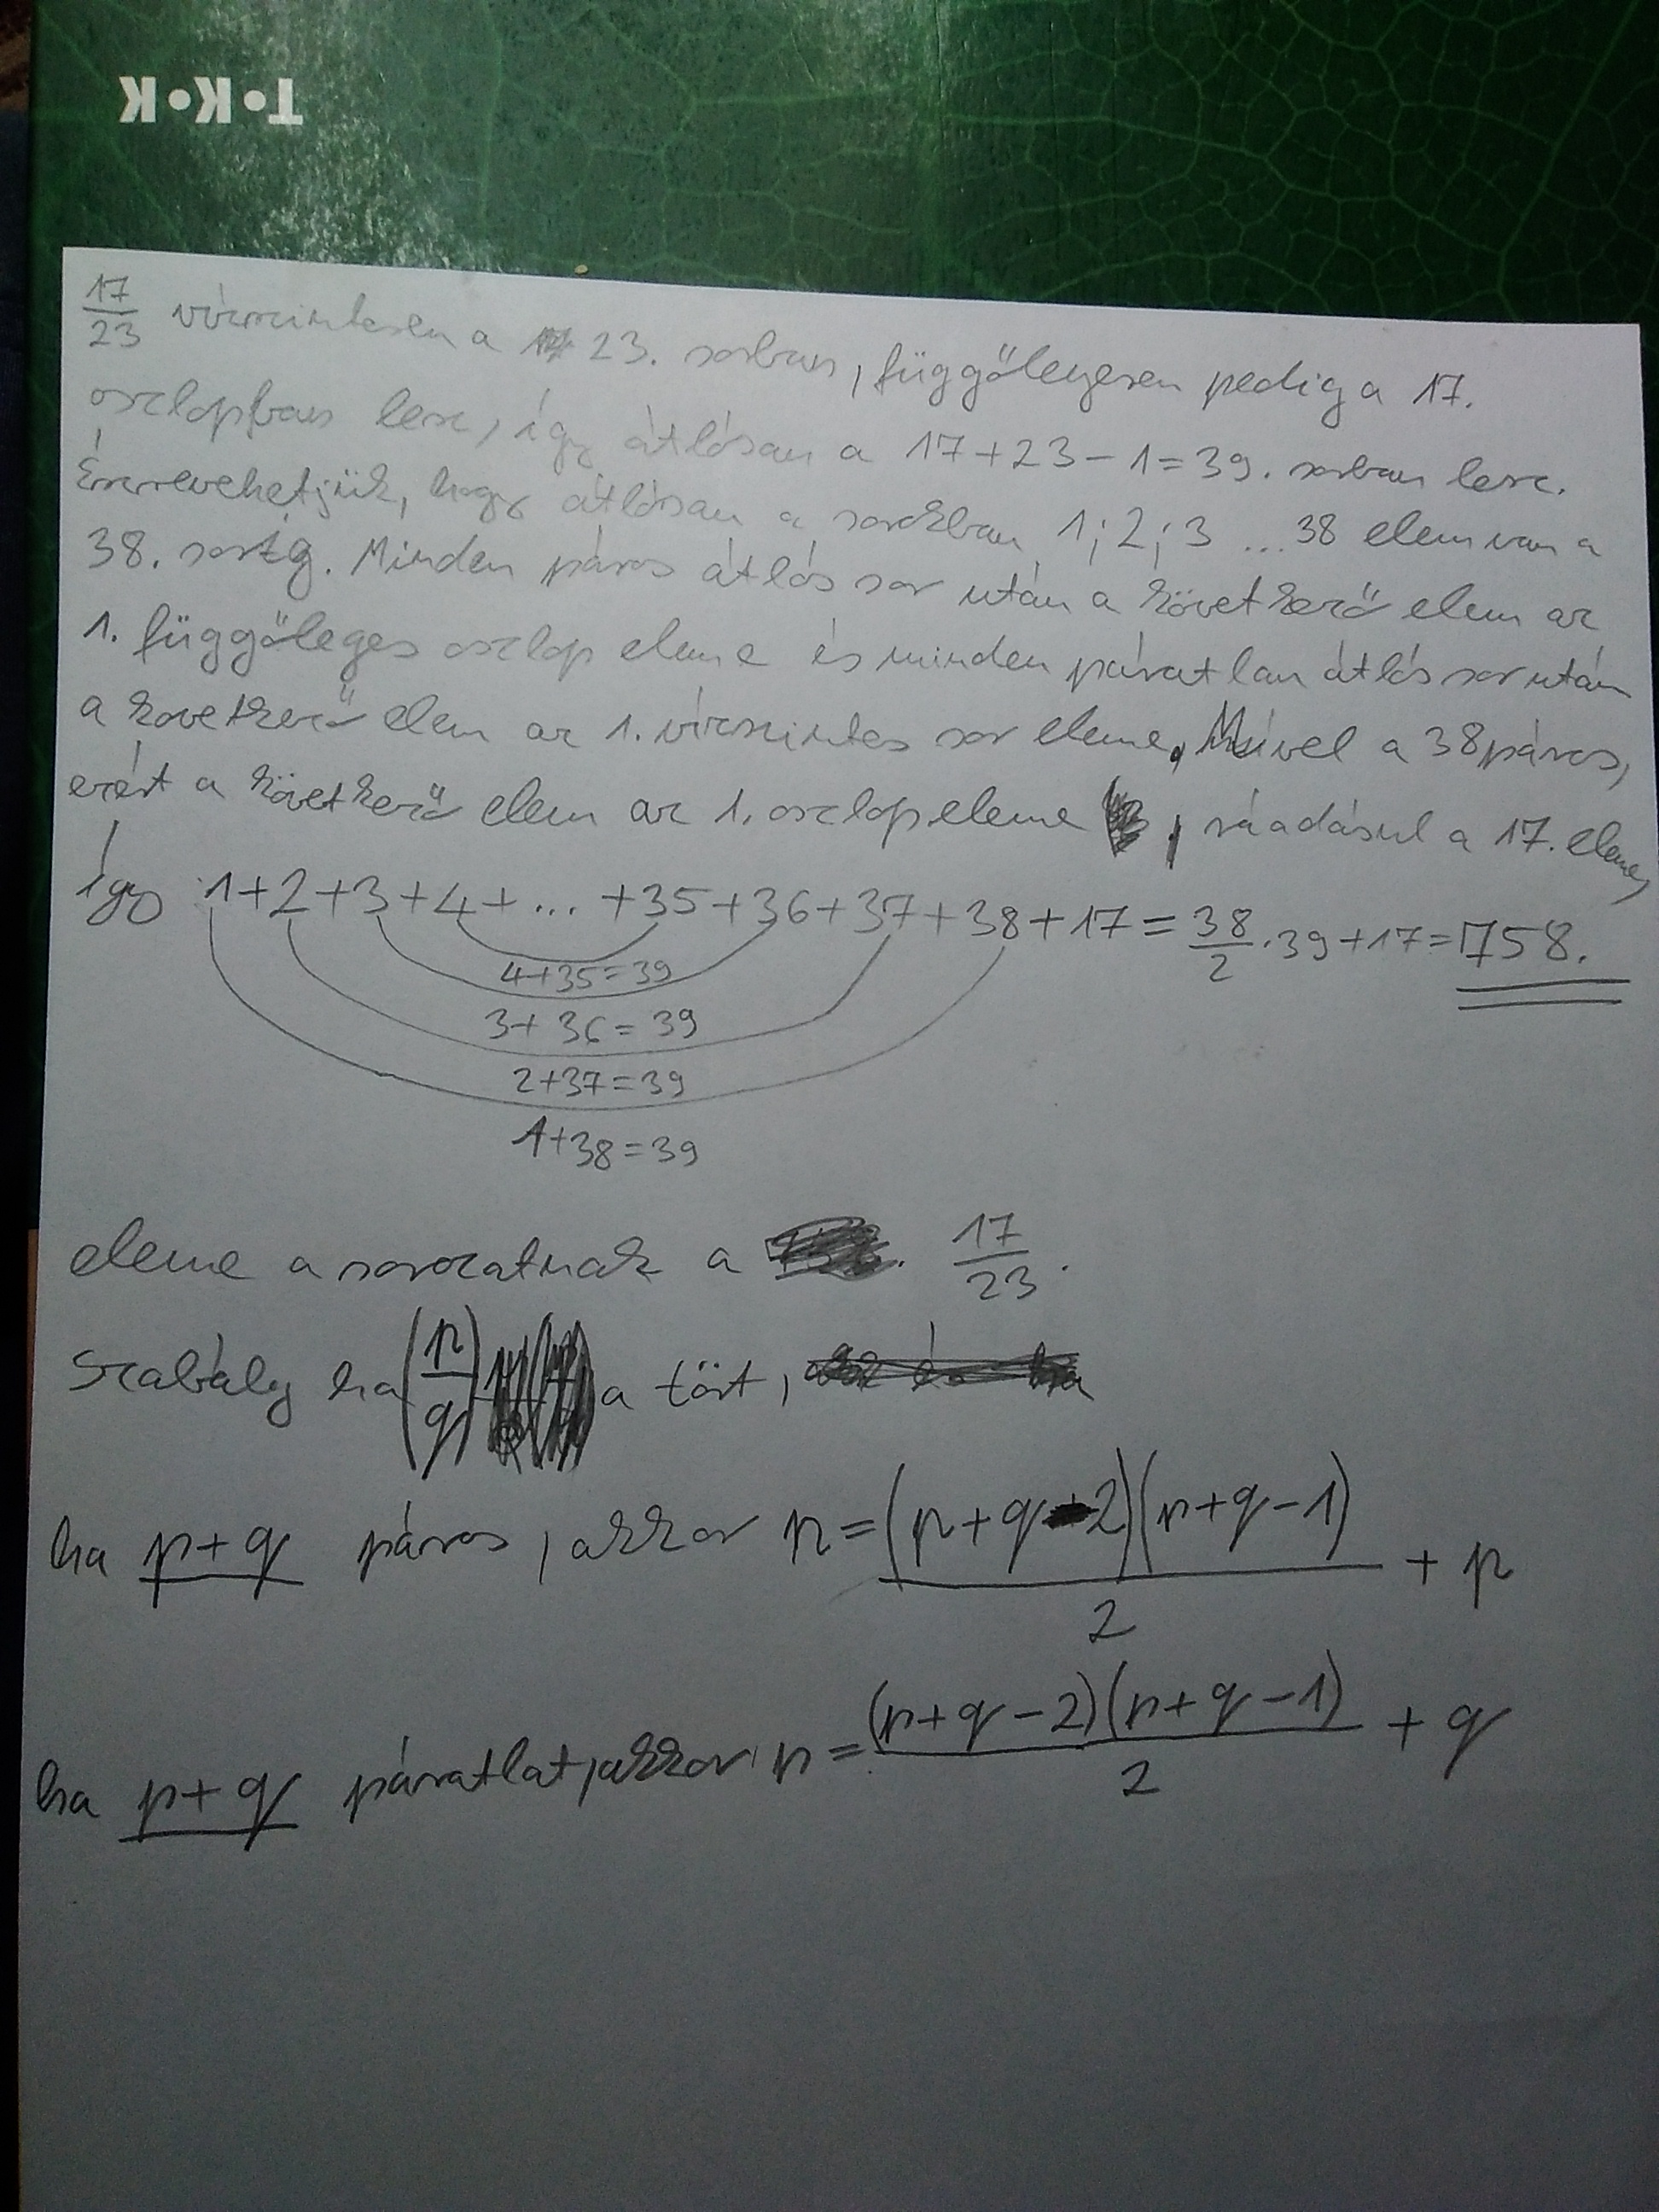 T•K•K
17/23 vízszintesen a 23. sorban, függőlegesen pedig a 17.
oszlopban lesz, így átlósan a 17+23-1=39. sorban lesz.
Észrevehetjük, hogy átlósan a sorokban 1; 2; 3 ...38 elem van a
38. sorig. Minden páros átlós sor után a következő elem az
1. függőleges oszlop eleme és minden páratlan átlós sor után
a következő elem az 1. vízszintes sor eleme. Mivel a 38 páros,
ezért a következő elem az 1. oszlop eleme, ráadásul a 17. eleme,
így 1+2+3+4+... +35+36+37+38+17= 38/2 · 39+17=758.
4+35=39
3+36=39
2+37=39
1+38=39
eleme a sorozatnak a 17/23.
Szabály ha (p/q) a tört,
ha p+q páros, akkor n= (p+q-2)(p+q-1)/2 + p
ha p+q páratlat, akkor n= (p+q-2)(p+q-1)/2 + q